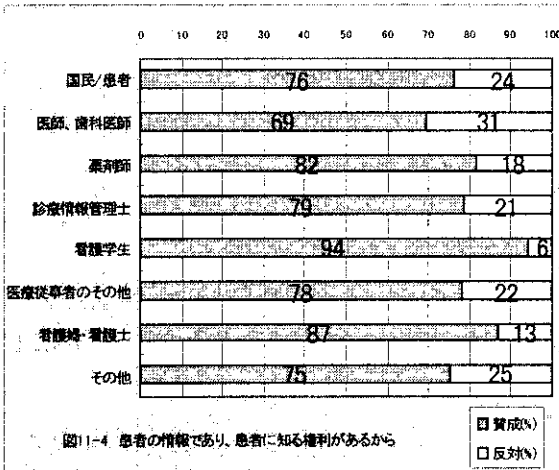 0 10 20 30 40 50 60 70 80 90 100
国民/患者 76 24
医師、歯科医師 69 31
薬剤師 82 18
診療情報管理士 79 21
看護学生 94 6
医療従事者のその他 78 22
看護婦・看護士 87 13
その他 75 25
図11-4 患者の情報であり、患者に知る権利があるから
賛成(%)
反対(%)